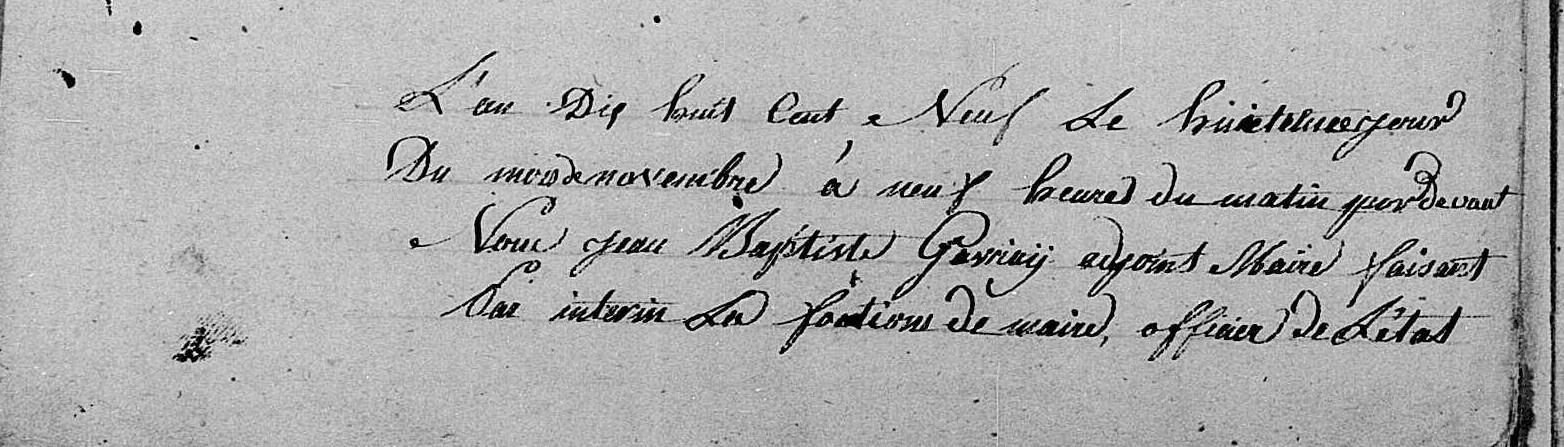 L'an Dix huit Cent Neuf Le huitieme jour
Du mois de novembre à neuf heures du matin par Devant
Nous jean Baptiste adjoint Maire faisant
Par interin Les foctions de maire, officier de L'état